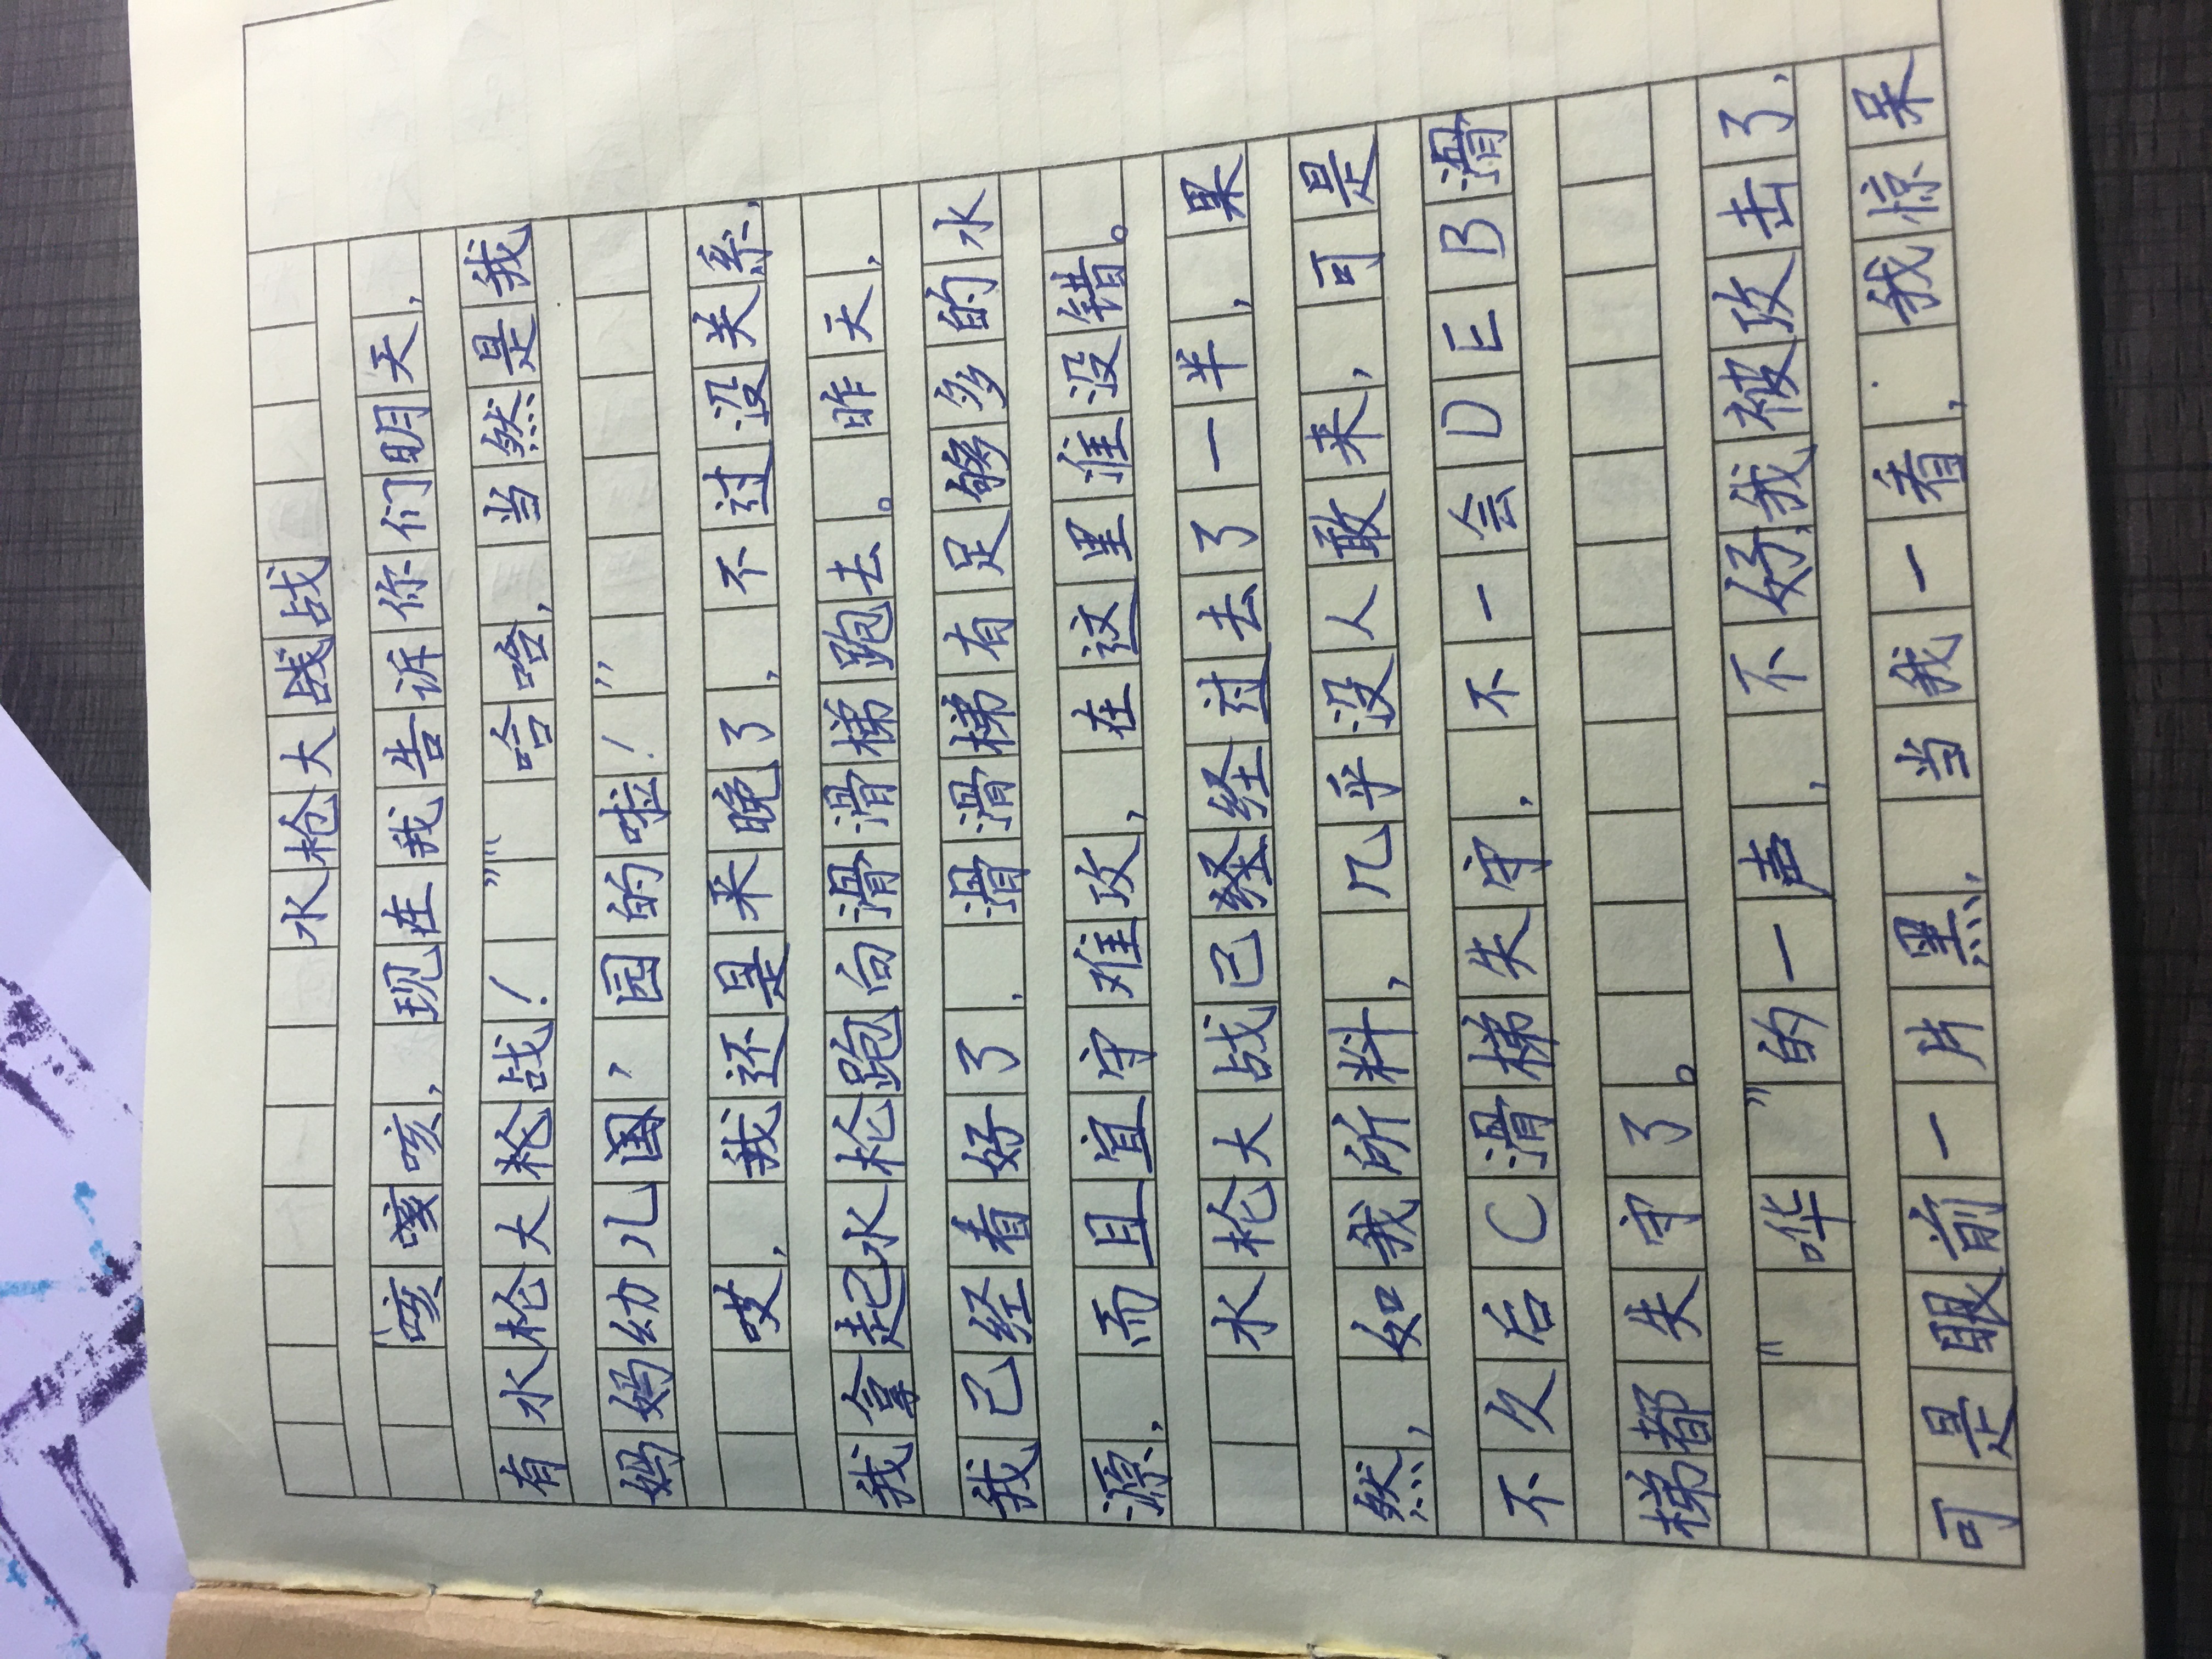 水枪大战战
咳咳咳，现在我告诉你们明天，
有水枪大枪战！”“哈哈，当然是我
妈妈幼儿国，园的啦！”
哎，我还是来晚了，不过没关系，
我拿起水枪跑向滑滑梯跑去。昨天，
我己经看好了．滑滑梯有足够多的水
源，而且宜守难攻，在这里准没错。
水枪大战己经经过去了一半，果
然，如我所料，几乎没人敢来，可是
不久后C滑梯失守，不一会DEB滑
梯都失守了。
“哗”的一声，不好，我被攻击了，
可是眼前一片黑，当我一看，我惊呆